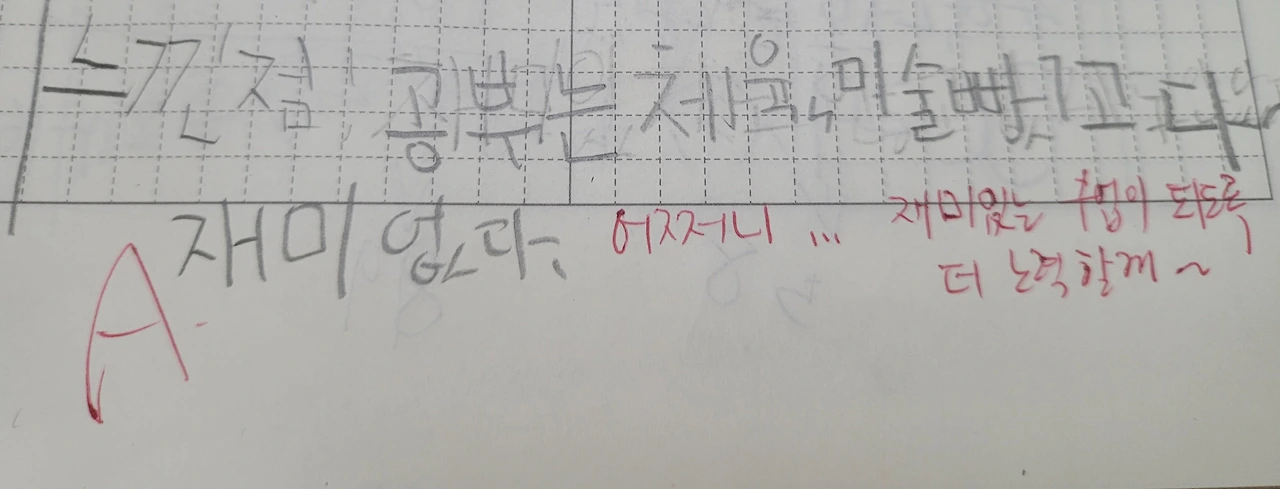 느낀점 공부는 체육, 미술 다
재미 없다.
어쩌니 ...
재미있는 수업이 되도록
더 노력할게 ~
A